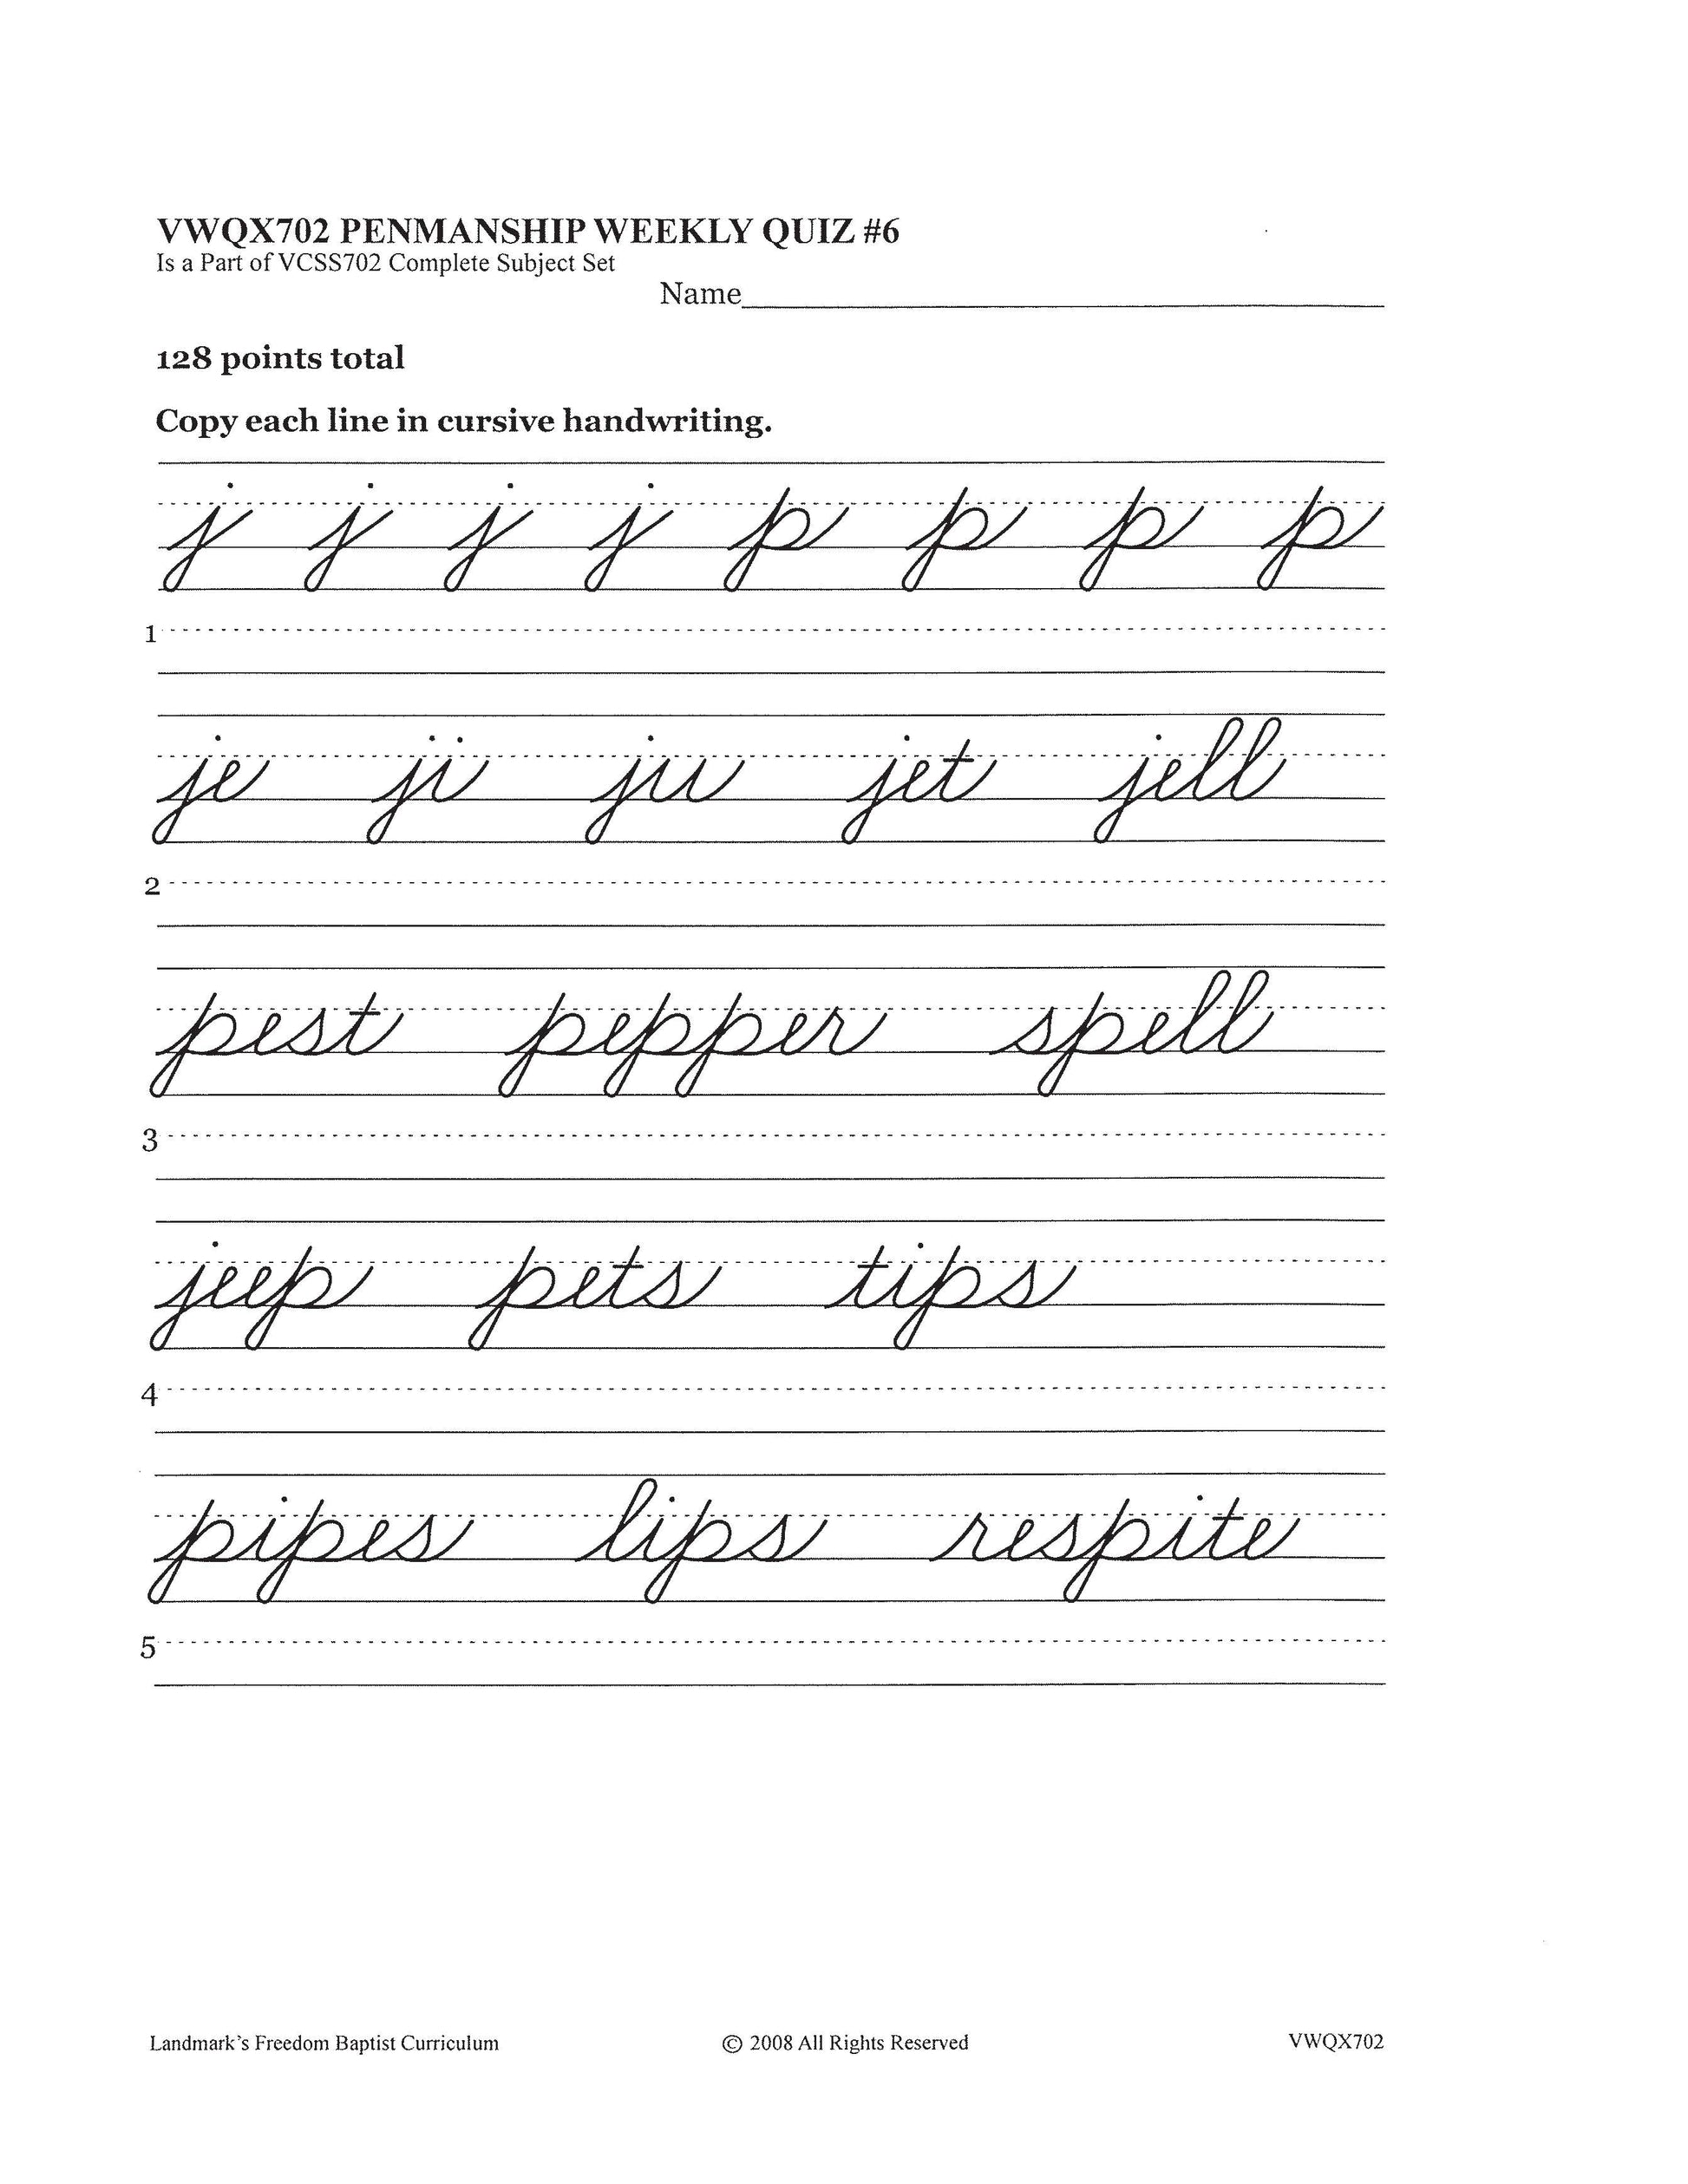 VWQX702 PENMANSHIP WEEKLY QUIZ #6
Is a Part of VCSS702 Complete Subject Set
Name
128 points total
Copy each line in cursive handwriting.
j j j j p p p p
1
je ji ju jet jell
2
pest pepper spell
3
jeep pets tips
4
pipes lips respite
5
Landmark's Freedom Baptist Curriculum © 2008 All Rights Reserved VWQX702